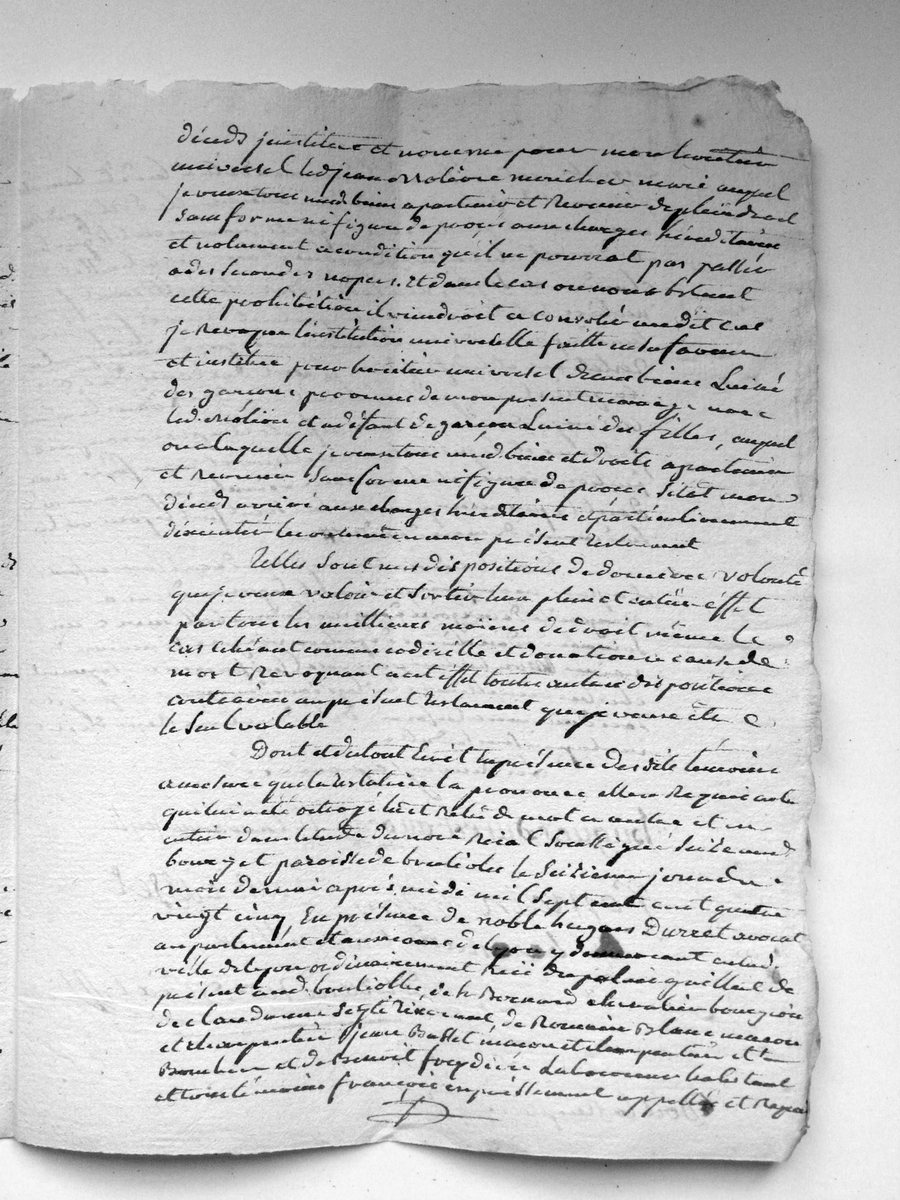 décéds j'institue et nomme pour mon héritier
universel led jean molière mon cher mari auquel
je veux tous mesd biens apartenir et Revenir de plein droit
sans forme ni figure de procès aux charges héréditaires
et notament a condition qu'il ne pourrat pas passer
a des secondes nopces. Et dans le cas ou nonobstant
cette prohibition il viendroit a convoler audit cas
je Revoque l'institution universelle faitte en sa faveur
et institue pour héritier universel de mes biens l'ainé
des garçons provenus de mon présent mariage avec
led. et a défaut de garçon l'ainé des filles, auquel
ou a laquelle je veux tous mesd biens et droits apartenir
et Revenir sans forme ni figure de proces sitot mon
décéds arrivé aux charges héréditaires et particulièrement
d'exécuter le contenu en mon présent testament
Telles sont mes dispositions de dernière volonté
que je veux valoir et sortir leur plein et entier effet
par tous les meilleures moiens de droit même le
cas échéant comme codicille et donation a cause de
mort Revoquant a cet effet toutes autres dispositions
contraires au présent testament que je veux être
le seul valable
Dont et du tout Ecrit En présence des dits témoins
a mesure que la testatrice la prononcé elle a Requis acte
qui lui a été octroyé lû et Relû de mot en autre et en
entier dans l'étude du no.re Roial soussigné size aud.
bourg et paroisse de le Seizieme jour du
mois de mai après midi mil sept cent quatre
vingt cinq En présence de noble hugues Durret avocat
au parlement et aux cours de lyon y demeurant
ville de lyon ordinairement
présent aud. de Sr Bernard chevalier bourgeois
de Romain Blanc macon
et charpentier jean Basset macon et charpentier
et de Benoit freydiére Laboureur habitant
et tous témoins françois expressement appellés et Requis